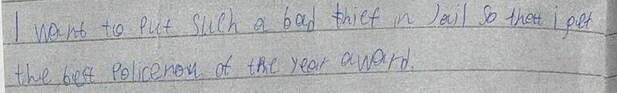 I want to put such a bad thief in Jail So that i get
the best Policeman of the year award.